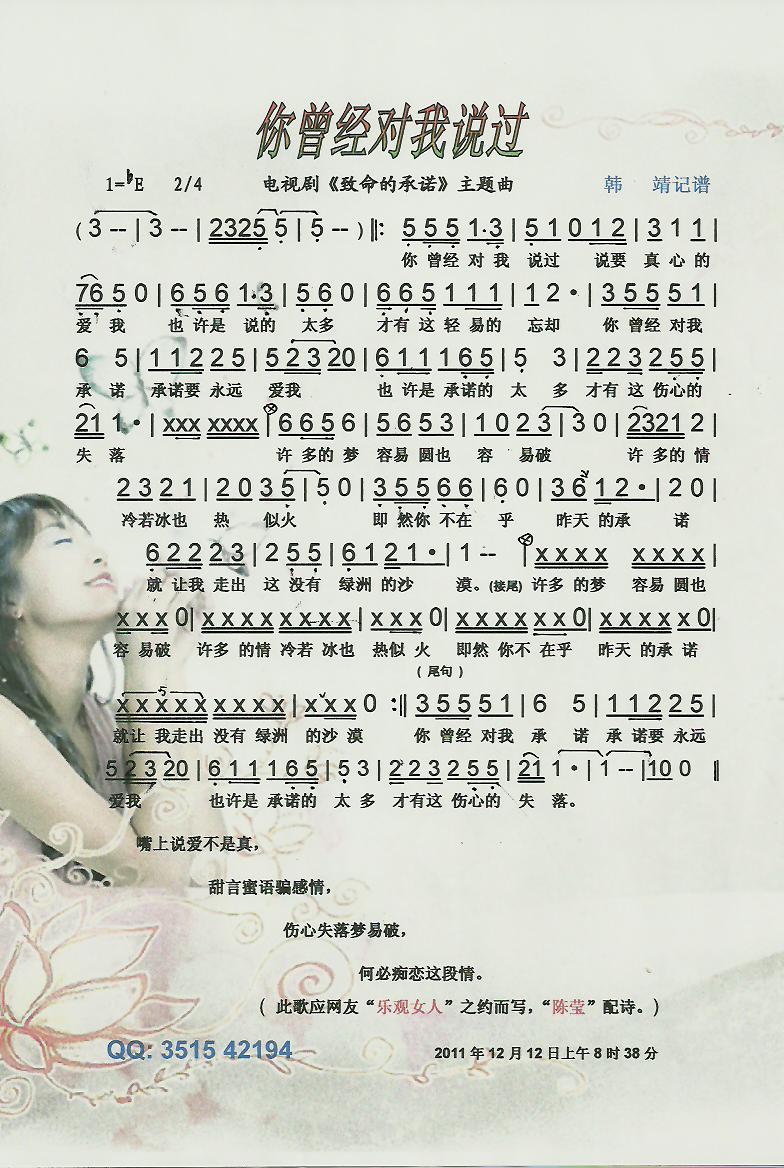 你曾经对我说过
1=♭E 2/4 电视剧《致命的承诺》主题曲 韩 靖记谱
( 3 -- | 3 -- | 2325 5 | 5 -- ) ‖: 5 5 5 1·3 | 5 1 0 1 2 | 3 1 1 |
你 曾经 对 我 说过 说要 真 心 的
76 5 0 | 6 5 6 1·3 | 5 6 0 | 6 6 5 1 1 1 | 1 2 · | 3 5 5 5 1 |
爱 我 也 许是 说的 太多 才有 这 轻易 的 忘却 你 曾经 对我
6 5 | 1 1 2 2 5 | 5 2 3 20 | 6 1 1 1 6 5 | 5 3 | 2 2 3 2 5 5 |
承 诺 承诺要 永远 爱我 也 许是 承诺的 太 多 才有 这 伤心的
21 1 · | xxx xxxx | 6 6 5 6 | 5 6 5 3 | 1 0 2 3 | 3 0 | 2321 2 |
失 落 许 多的 梦 容易 圆也 容 易破 许 多的 情
2 3 2 1 | 2 0 3 5 | 5 0 | 3 5 5 6 6 | 6 0 | 3 6 1 2 · | 2 0 |
冷若冰也 热 似火 即 然你 不在 乎 昨天 的承 诺
6 2 2 2 2 3 | 2 5 5 | 6 1 2 1 · | 1 -- | x x x x x x x x |
就 让我 走出 这 没有 绿洲 的沙 漠。(接尾) 许多 的梦 容易 圆也
x x x 0 | x x x x x x x x | x x x 0 | x x x x x x 0 | x x x x x 0 |
容 易破 许多 的情 冷若 冰也 热似 火 即然 你不 在乎 昨天 的承 诺
( 尾句 )
5
x x x x x x x x x | x x x 0 :‖ 3 5 5 5 1 | 6 5 | 1 1 2 2 5 |
就让 我走出 没有 绿洲 的沙 漠 你 曾经 对我 承 诺 承 诺要 永远
5 2 3 20 | 6 1 1 1 6 5 5 3 | 2 2 3 2 5 5 | 21 1 · | 1 -- | 10 0 ‖
爱我 也许是 承诺的 太 多 才有这 伤心的 失 落。
嘴上说爱不是真，
甜言蜜语骗感情，
伤心失落梦易破，
何必痴恋这段情。
( 此歌应网友“乐观女人”之约而写，“陈莹”配诗。)
QQ: 3515 42194
2011 年 12 月 12 日上午 8 时 38 分